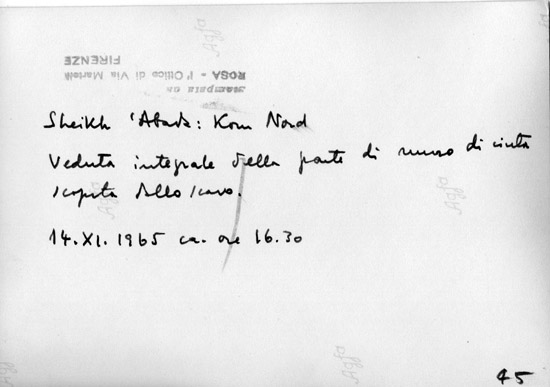 Agfa
FIRENZE
ROSA - l'Ottico di Via Martelli
stampata da
Sheikh 'Abada: Kom Nord
Veduta integrale della parte di muro di cinta
scoperta dallo scavo.
Agfa
Agfa
14.XI.1965 ca. ore 16.30
Agfa
Agfa
45